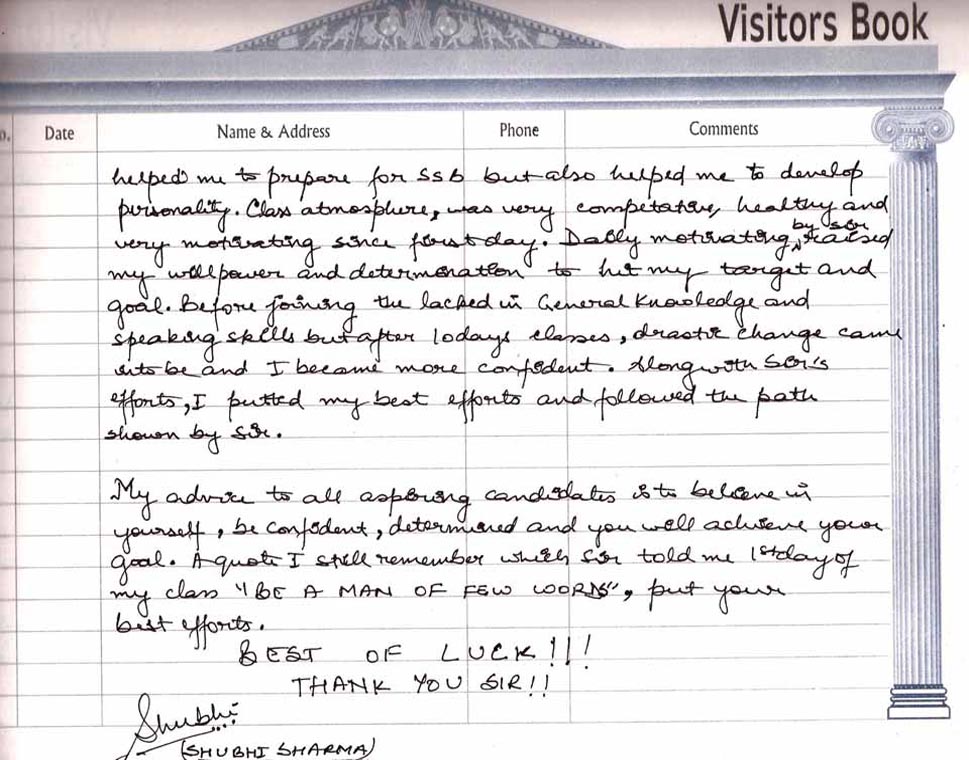 Visitors Book
Date Name & Address Phone Comments
helped me to prepare for SSB but also helped me to develop
personality. Class atmosphere, was very competative, healthy and
very motivating since first day. Daily motivating by sir raised
my willpower and determination to hit my target and
goal. Before joining the lacked in General Knowledge and
speaking skills but after 10days classes, drastic change came
into be and I became more confident. Alongwith Sir's
efforts, I putted my best efforts and followed the path
shown by sir.
My advice to all aspiring candidates is to believe in
yourself, be confident, determined and you will achieve your
goal. A quote I still remember which sir told me 1st day of
my class "BE A MAN OF FEW WORDS", put your
best efforts.
BEST OF LUCK!!!
THANK YOU SIR!!
Shubhi
(SHUBHI SHARMA)